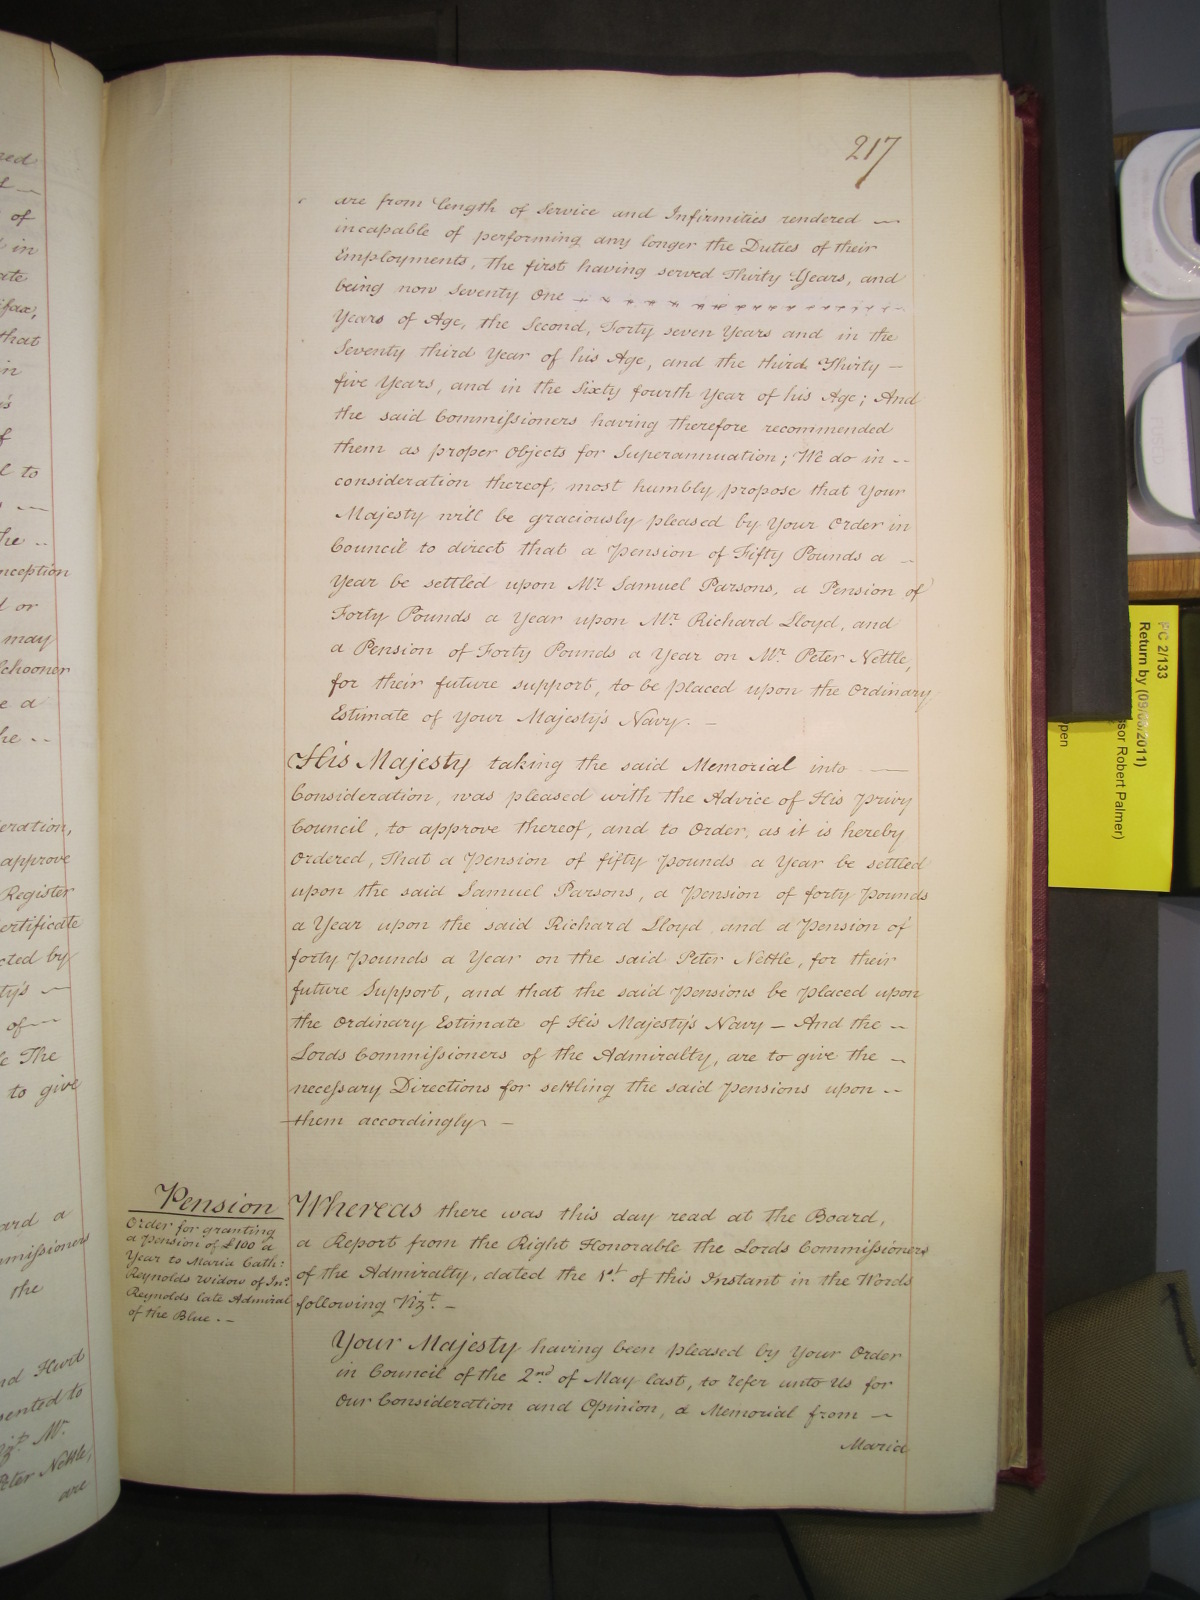 217
are from length of Service and Infirmities rendered —
incapable of performing any longer the Duties of their
Employments, the first having served Thirty Years, and
being now Seventy One
Years of Age, the Second, Forty seven Years and in the
Seventy third Year of his Age, and the third Thirty —
five Years, and in the Sixty fourth Year of his Age; And
the said Commissioners having therefore recommended
them as proper Objects for Superannuation; We do in --
consideration thereof, most humbly propose that Your
Majesty will be graciously pleased by Your Order in
Council to direct that a Pension of Fifty Pounds a --
Year be settled upon Mr. Samuel Parsons, a Pension of
Forty Pounds a Year upon Mr. Richard Lloyd, and
a Pension of Forty Pounds a Year on Mr. Peter Nettle,
for their future support, to be placed upon the Ordinary
Estimate of Your Majesty's Navy. —
His Majesty taking the said Memorial into —
Consideration, was pleased with the Advice of His Privy
Council, to approve thereof, and to Order, as it is hereby
Ordered, That a Pension of fifty Pounds a Year be settled
upon the said Samuel Parsons, a Pension of forty Pounds
a Year upon the said Richard Lloyd and a Pension of
forty Pounds a Year on the said Peter Nettle, for their
future Support, and that the said Pensions be placed upon
the Ordinary Estimate of His Majesty's Navy — And the --
Lords Commissioners of the Admiralty, are to give the --
necessary Directions for settling the said Pensions upon --
them accordingly —
Pension
Order for granting
a Pension of £100 a
Year to Maria Cath:
Reynolds Widow of Jno.
Reynolds late Admiral
of the Blue. —
Whereas there was this day read at the Board,
a Report from the Right Honorable the Lords Commissioners
of the Admiralty, dated the 1st. of this Instant in the Words
following Vizt. —
Your Majesty having been pleased by Your Order
in Council of the 2nd of May last, to refer unto Us for
Our Consideration and Opinion, a Memorial from —
Maria
of
in
that
in
of
to
or
may
Schooner
approve
Register
Certificate
by
of —
The
to give
Commissioners
the
and Hurd
Mr.
Peter Nettle,
are
PC 2/133
Return by (09/05/2011)
Robert Palmer)